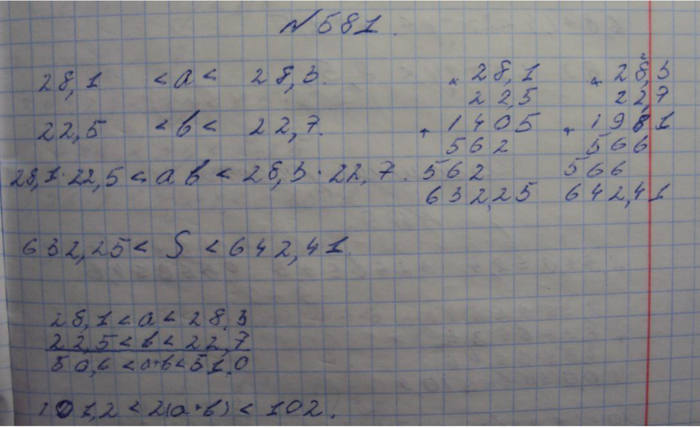 N 581.
28,1 < a < 28,3.
22,5 < b < 22,7.
28,1·22,5 < ab < 28,3·22,7.
632,25 < S < 642,41
× 28,1
22,5
+ 1405
562
562
632,25
× 28,3
22,7
+ 1981
566
566
642,41
28,1 < a < 28,3
22,5 < b < 22,7
50,6 < a+b < 51,0
101,2 < 2(a+b) < 102.